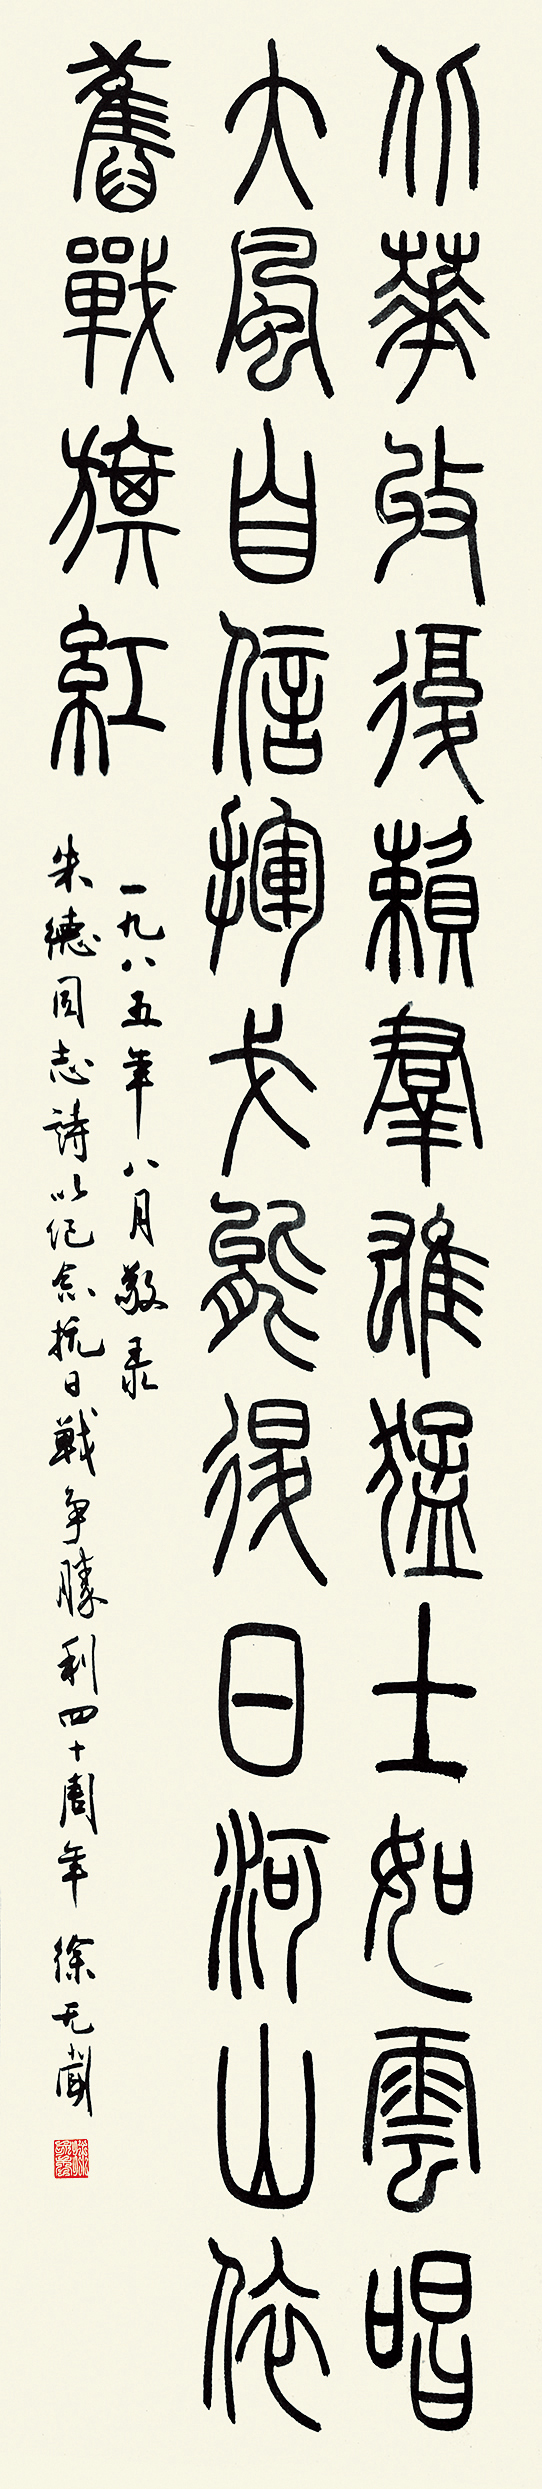 北華收復賴羣雄猛士如雲唱
大風自信揮戈能退日河山依
舊戰旗紅
一九八五年八月敬录
朱德同志詩以纪念抗日戰争勝利四十周年 徐无聞